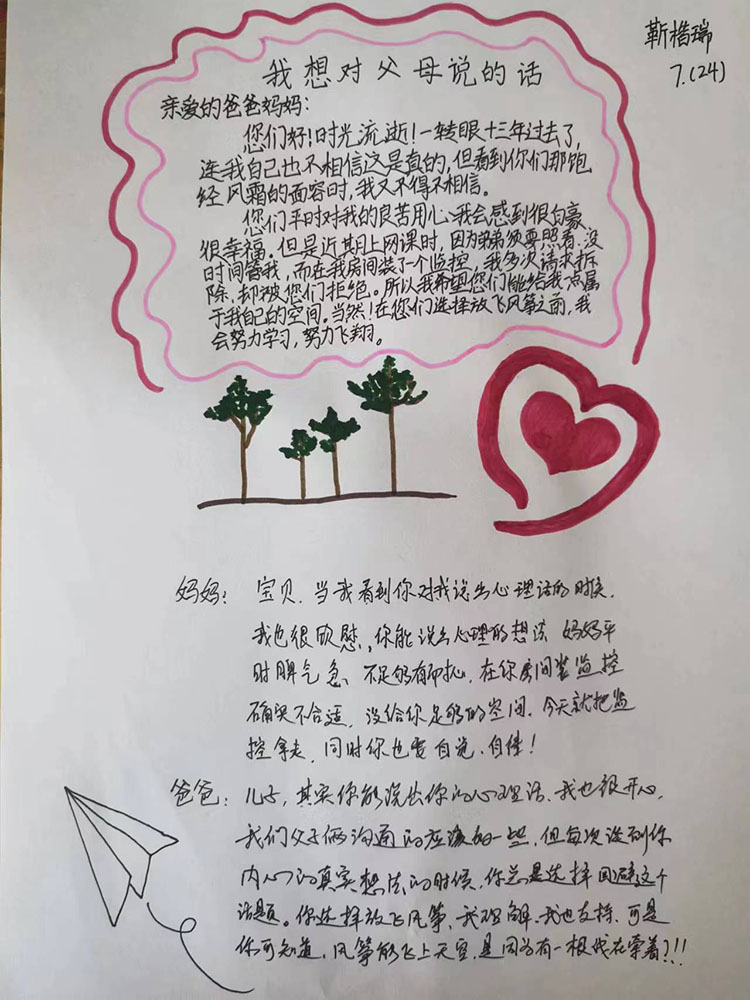 靳楷瑞
7.(24)
我想对父母说的话
亲爱的爸爸妈妈：
您们好！时光流逝！一转眼十三年过去了，
连我自己也不相信这是真的，但看到你们那饱
经风霜的面容时，我又不得不相信。
您们平时对我的良苦用心，我会感到很自豪
很幸福。但是近期上网课时，因为弟弟须要照看，没
时间管我，而在我房间装了一个监控，我多次请求拆
除，却被您们拒绝。所以我希望您们能给我一点属
于我自己的空间。当然！在您们选择放飞风筝之前，我
会努力学习，努力飞翔。
妈妈：宝贝，当我看到你对我说出心理话的时候，
我也很欣慰，你能说出心理的想法 妈妈平
时脾气急、不足够有耐心，在你房间装监控
确实不合适，没给你足够的空间，今天就把监
控拿走，同时你也要自觉、自律！
爸爸：儿子，其实你能说出你的心理话，我也很开心，
我们父子俩沟通的应该好一些，但每次谈到你
内心的真实想法的时候，你总是选择回避这个
话题。你选择放飞风筝，我理解，我也支持，可是
你可知道，风筝能飞上天空，是因为有一根线在牵着？！！